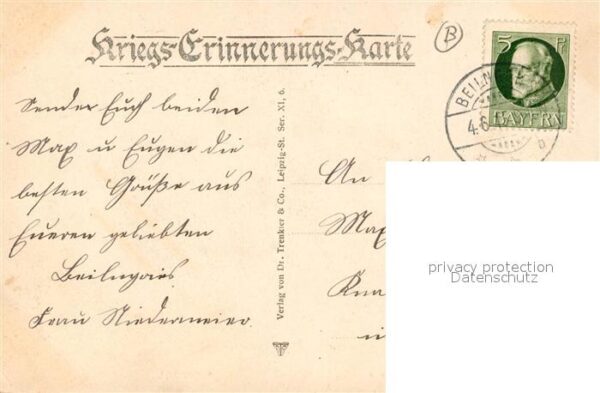 Kriegs-Erinnerungs-Karte
B
5 Pf
BAYERN
BEILN
4.6
Sender Euch beiden
Max u Eugen die
besten Grüße aus
Eueren geliebten
Beilngries
Frau Niedermeier.
Verlag von Dr. Trenkler & Co., Leipzig-St. Ser. XI, 6.
An
Max
Kna
privacy protection
Datenschutz